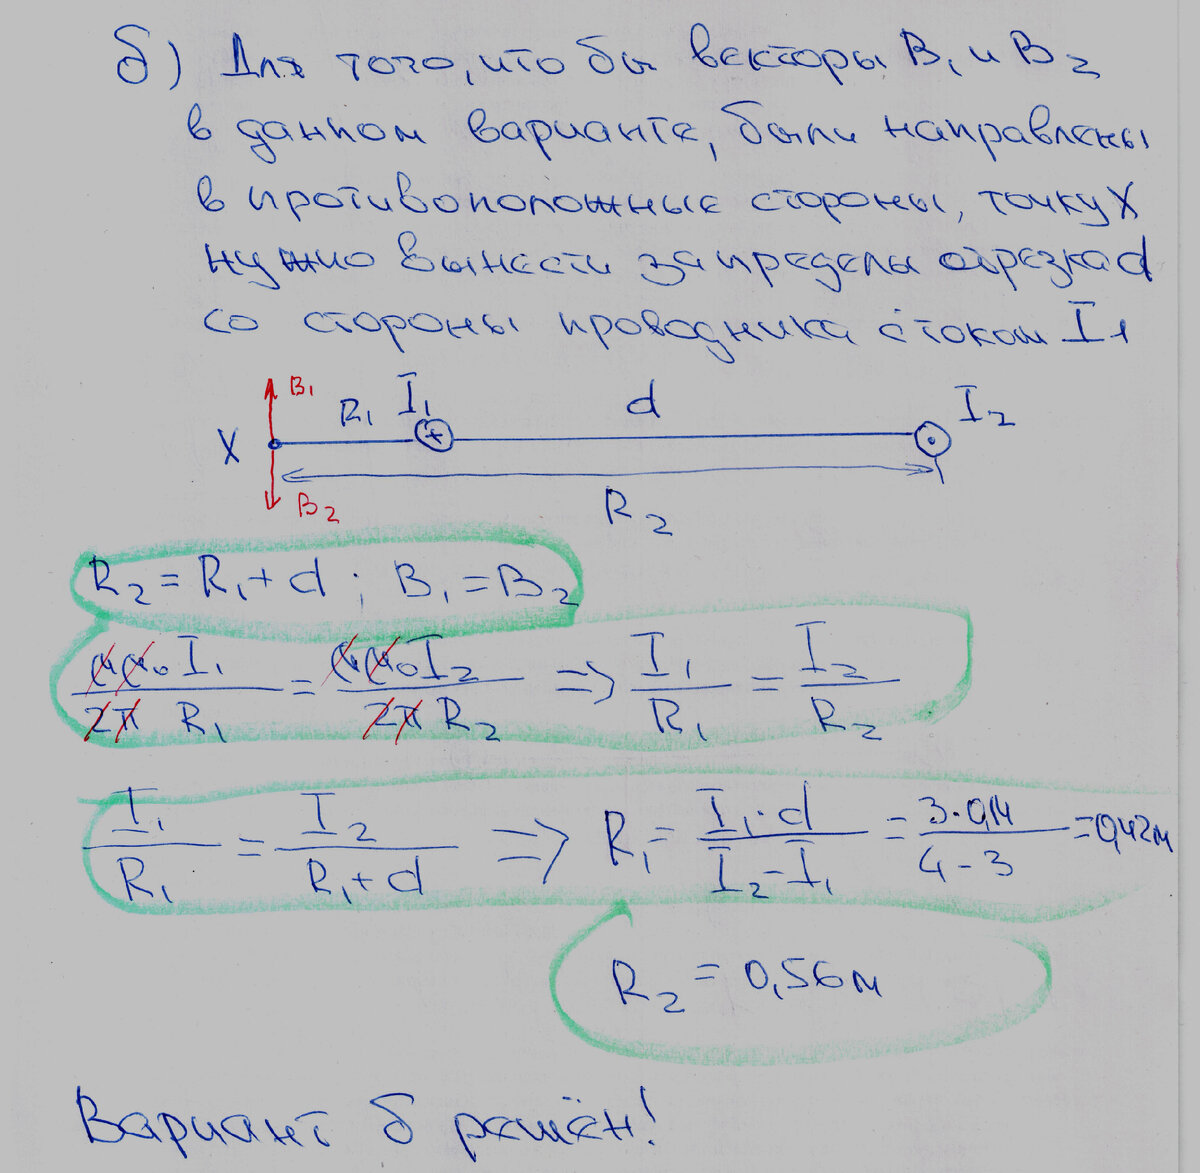 б) Для того, что бы векторы B₁ и B₂
в данном варианте, были направлены
в противоположные стороны, точку X
нужно вынести за пределы отрезка d
со стороны проводника с током I₁
B₁
R₁ I₁ d I₂
X
B₂ R₂
R₂ = R₁ + d ; B₁ = B₂
μμ₀I₁ / 2π R₁ = μμ₀I₂ / 2π R₂ => I₁ / R₁ = I₂ / R₂
I₁ / R₁ = I₂ / R₁ + d => R₁ = I₁·d / I₂ - I₁ = 3·0,14 / 4 - 3 = 0,42м
R₂ = 0,56м
Вариант б решён!